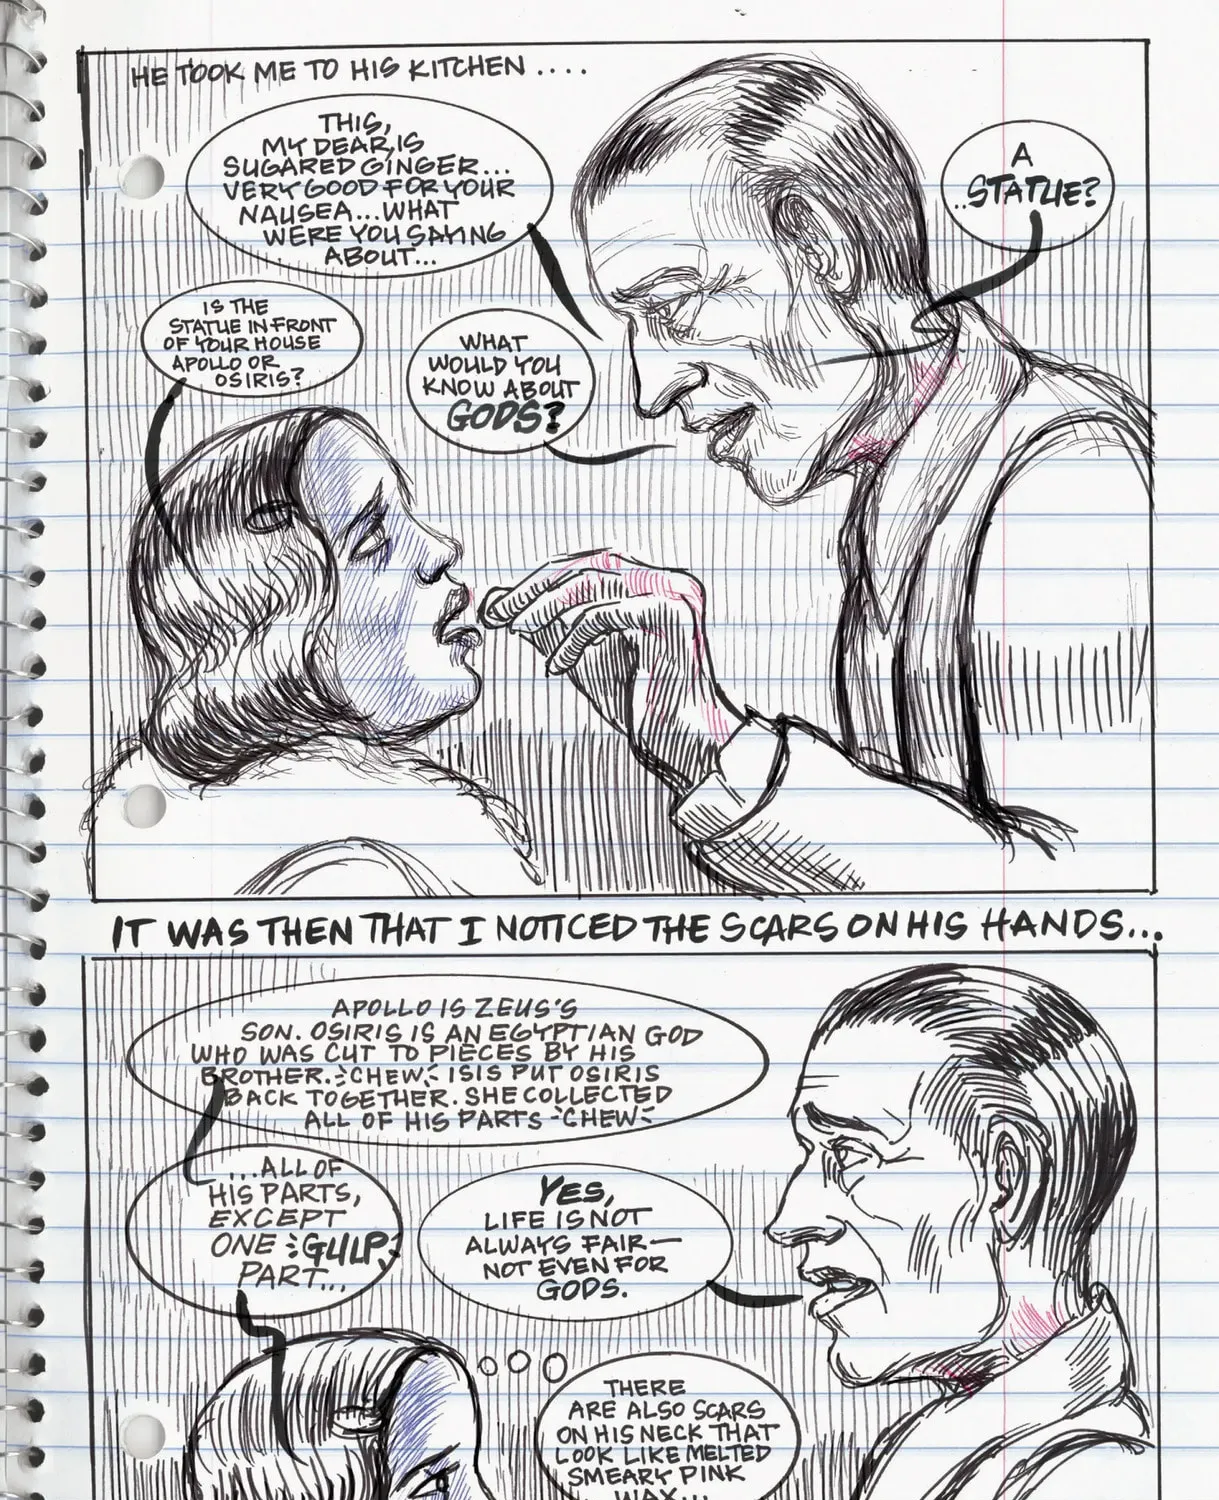 HE TOOK ME TO HIS KITCHEN ....
THIS,
MY DEAR, IS
SUGARED GINGER...
VERY GOOD FOR YOUR
NAUSEA...WHAT
WERE YOU SAYING
ABOUT...
A
..STATUE?
IS THE
STATUE IN FRONT
OF YOUR HOUSE
APOLLO OR
OSIRIS?
WHAT
WOULD YOU
KNOW ABOUT
GODS?
IT WAS THEN THAT I NOTICED THE SCARS ON HIS HANDS...
APOLLO IS ZEUS'S
SON. OSIRIS IS AN EGYPTIAN GOD
WHO WAS CUT TO PIECES BY HIS
BROTHER. CHEW ISIS PUT OSIRIS
BACK TOGETHER. SHE COLLECTED
ALL OF HIS PARTS CHEW
...ALL OF
HIS PARTS,
EXCEPT
ONE GULP
PART...
YES,
LIFE IS NOT
ALWAYS FAIR—
NOT EVEN FOR
GODS.
THERE
ARE ALSO SCARS
ON HIS NECK THAT
LOOK LIKE MELTED
SMEARY PINK
WAX...